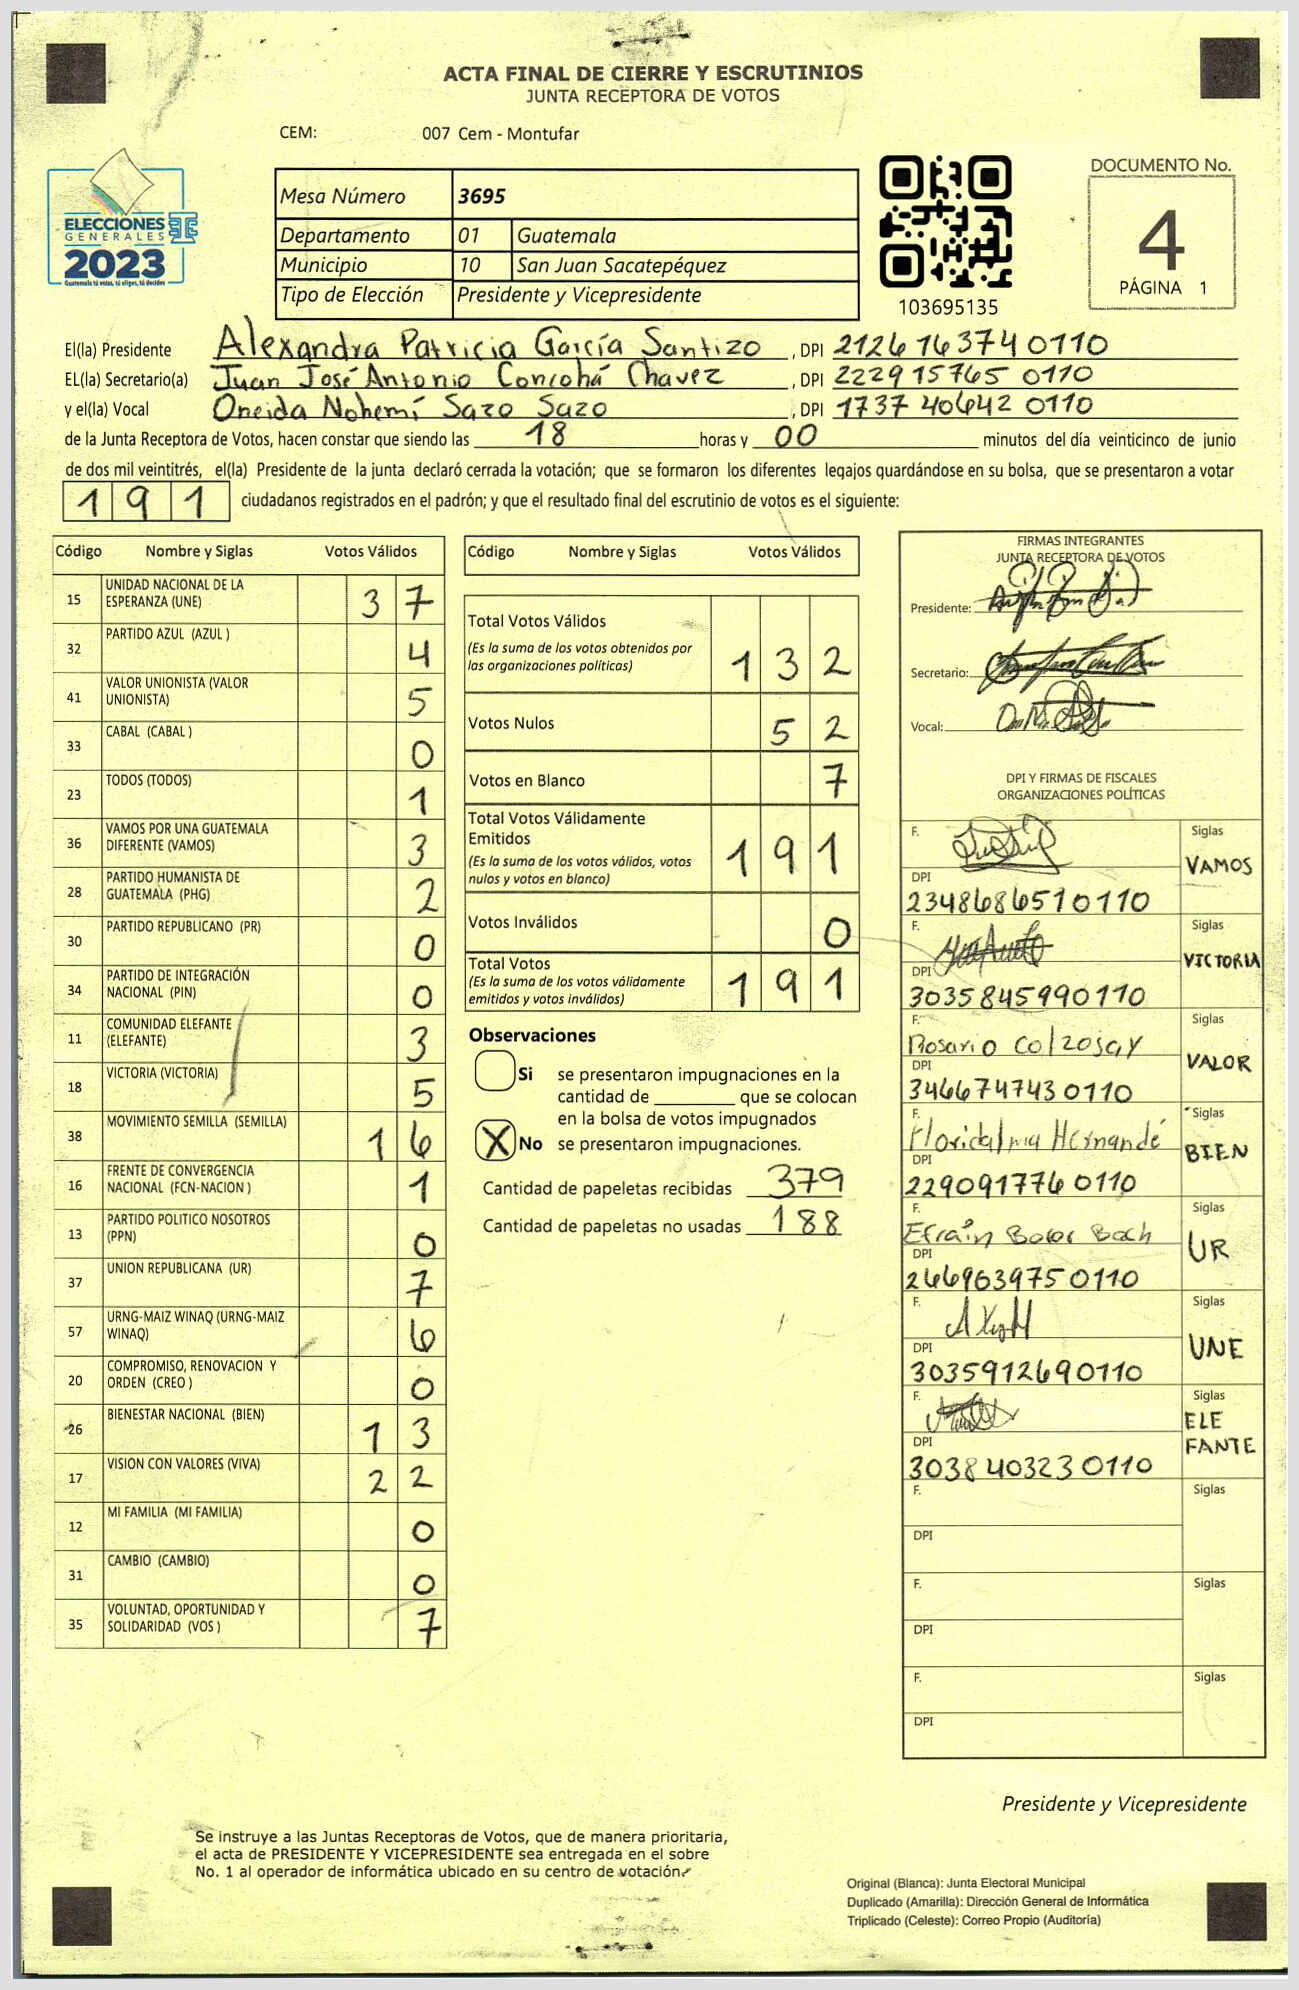 ACTA FINAL DE CIERRE Y ESCRUTINIOS
JUNTA RECEPTORA DE VOTOS
CEM: 007 Cem - Montufar
ELECCIONES
GENERALES
2023
Guatemala tú votas, tú eliges, tú decides
Mesa Número 3695
Departamento 01 Guatemala
Municipio 10 San Juan Sacatepéquez
Tipo de Elección Presidente y Vicepresidente
103695135
DOCUMENTO No.
4
PÁGINA 1
El(la) Presidente Alexandra Patricia García Santizo , DPI 2126163740110
EL(la) Secretario(a) Juan José Antonio Concohá Chavez , DPI 222915765 0110
y el(la) Vocal Oneida Nohemí Sazo Sazo , DPI 1737 40642 0110
de la Junta Receptora de Votos, hacen constar que siendo las 18 horas y 00 minutos del día veinticinco de junio
de dos mil veintitrés, el(la) Presidente de la junta declaró cerrada la votación; que se formaron los diferentes legajos quardándose en su bolsa, que se presentaron a votar
191 ciudadanos registrados en el padrón; y que el resultado final del escrutinio de votos es el siguiente:
Código Nombre y Siglas Votos Válidos
15 UNIDAD NACIONAL DE LA ESPERANZA (UNE) 37
32 PARTIDO AZUL (AZUL ) 4
41 VALOR UNIONISTA (VALOR UNIONISTA) 5
33 CABAL (CABAL ) 0
23 TODOS (TODOS) 1
36 VAMOS POR UNA GUATEMALA DIFERENTE (VAMOS) 3
28 PARTIDO HUMANISTA DE GUATEMALA (PHG) 2
30 PARTIDO REPUBLICANO (PR) 0
34 PARTIDO DE INTEGRACIÓN NACIONAL (PIN) 0
11 COMUNIDAD ELEFANTE (ELEFANTE) 3
18 VICTORIA (VICTORIA) 5
38 MOVIMIENTO SEMILLA (SEMILLA) 16
16 FRENTE DE CONVERGENCIA NACIONAL (FCN-NACION ) 1
13 PARTIDO POLITICO NOSOTROS (PPN) 0
37 UNION REPUBLICANA (UR) 7
57 URNG-MAIZ WINAQ (URNG-MAIZ WINAQ) 6
20 COMPROMISO, RENOVACION Y ORDEN (CREO ) 0
26 BIENESTAR NACIONAL (BIEN) 13
17 VISION CON VALORES (VIVA) 22
12 MI FAMILIA (MI FAMILIA) 0
31 CAMBIO (CAMBIO) 0
35 VOLUNTAD, OPORTUNIDAD Y SOLIDARIDAD (VOS ) 7
Código Nombre y Siglas Votos Válidos
Total Votos Válidos 132
(Es la suma de los votos obtenidos por
las organizaciones políticas)
Votos Nulos 52
Votos en Blanco 7
Total Votos Válidamente
Emitidos 191
(Es la suma de los votos válidos, votos
nulos y votos en blanco)
Votos Inválidos 0
Total Votos 191
(Es la suma de los votos válidamente
emitidos y votos inválidos)
Observaciones
Si se presentaron impugnaciones en la
cantidad de ________ que se colocan
en la bolsa de votos impugnados
X No se presentaron impugnaciones.
Cantidad de papeletas recibidas 379
Cantidad de papeletas no usadas 188
FIRMAS INTEGRANTES
JUNTA RECEPTORA DE VOTOS
Presidente:
Secretario:
Vocal:
DPI Y FIRMAS DE FISCALES
ORGANIZACIONES POLÍTICAS
F. Siglas
VAMOS
DPI
2348686510110
F. Siglas
VICTORIA
DPI
3035845990110
F. Siglas
Rosario
VALOR
DPI
3466747430110
F. Siglas
Floridalma Hernandé
BIEN
DPI
2290917760110
F. Siglas
Efraín
UR
DPI
2669639750110
F. Siglas
UNE
DPI
3035912690110
F. Siglas
ELE
FANTE
DPI
3038403230110
F. Siglas
DPI
F. Siglas
DPI
F. Siglas
DPI
Presidente y Vicepresidente
Se instruye a las Juntas Receptoras de Votos, que de manera prioritaria,
el acta de PRESIDENTE Y VICEPRESIDENTE sea entregada en el sobre
No. 1 al operador de informática ubicado en su centro de votación.
Original (Blanca): Junta Electoral Municipal
Duplicado (Amarilla): Dirección General de Informática
Triplicado (Celeste): Correo Propio (Auditoría)